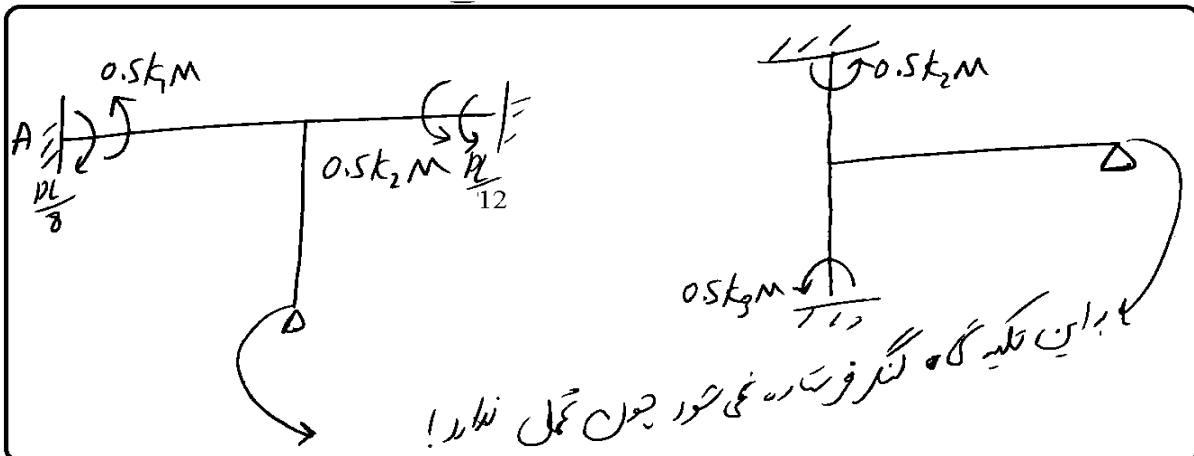 0.5k₁M
A
PL/8
0.5k₂M
PL/12
0.5k₂M
0.5k₃M
به این تکیه گاه لنگر فرستاده نمی شود چون تحمل ندارد!